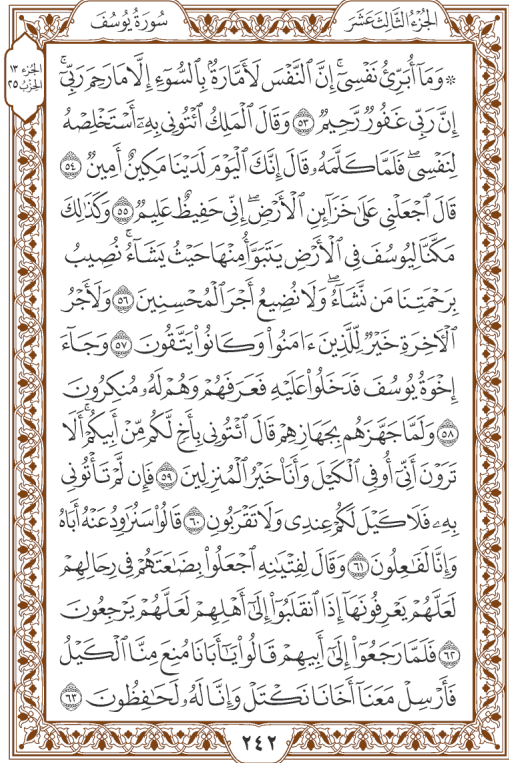 الجُزْءُ الثَّالِثَ عَشَرَ
سُورَةُ يُوسُفَ
الجُزء ١٣
الحِزْبُ ٢٥
۞ وَمَآ أُبَرِّئُ نَفْسِىٓۚ إِنَّ ٱلنَّفْسَ لَأَمَّارَةٌۢ بِٱلسُّوٓءِ إِلَّا مَا رَحِمَ رَبِّىٓۚ
إِنَّ رَبِّى غَفُورٌ رَّحِيمٌ ٥٣ وَقَالَ ٱلْمَلِكُ ٱئْتُونِى بِهِۦٓ أَسْتَخْلِصْهُ
لِنَفْسِىۖ فَلَمَّا كَلَّمَهُۥ قَالَ إِنَّكَ ٱلْيَوْمَ لَدَيْنَا مَكِينٌ أَمِينٌ ٥٤
قَالَ ٱجْعَلْنِى عَلَىٰ خَزَآئِنِ ٱلْأَرْضِۖ إِنِّى حَفِيظٌ عَلِيمٌ ٥٥ وَكَذَٰلِكَ
مَكَّنَّا لِيُوسُفَ فِى ٱلْأَرْضِ يَتَبَوَّأُ مِنْهَا حَيْثُ يَشَآءُۚ نُصِيبُ
بِرَحْمَتِنَا مَن نَّشَآءُۖ وَلَا نُضِيعُ أَجْرَ ٱلْمُحْسِنِينَ ٥٦ وَلَأَجْرُ
ٱلْـَٔاخِرَةِ خَيْرٌ لِّلَّذِينَ ءَامَنُوا۟ وَكَانُوا۟ يَتَّقُونَ ٥٧ وَجَآءَ
إِخْوَةُ يُوسُفَ فَدَخَلُوا۟ عَلَيْهِ فَعَرَفَهُمْ وَهُمْ لَهُۥ مُنكِرُونَ
٥٨ وَلَمَّا جَهَّزَهُم بِجَهَازِهِمْ قَالَ ٱئْتُونِى بِأَخٍ لَّكُم مِّنْ أَبِيكُمْۚ أَلَا
تَرَوْنَ أَنِّىٓ أُوفِى ٱلْكَيْلَ وَأَنَا۠ خَيْرُ ٱلْمُنزِلِينَ ٥٩ فَإِن لَّمْ تَأْتُونِى
بِهِۦ فَلَا كَيْلَ لَكُمْ عِندِى وَلَا تَقْرَبُونِ ٦٠ قَالُوا۟ سَنُرَٰوِدُ عَنْهُ أَبَاهُ
وَإِنَّا لَفَٰعِلُونَ ٦١ وَقَالَ لِفِتْيَٰنِهِ ٱجْعَلُوا۟ بِضَٰعَتَهُمْ فِى رِحَالِهِمْ
لَعَلَّهُمْ يَعْرِفُونَهَآ إِذَا ٱنقَلَبُوٓا۟ إِلَىٰٓ أَهْلِهِمْ لَعَلَّهُمْ يَرْجِعُونَ
٦٢ فَلَمَّا رَجَعُوٓا۟ إِلَىٰٓ أَبِيهِمْ قَالُوا۟ يَٰٓأَبَانَا مُنِعَ مِنَّا ٱلْكَيْلُ
فَأَرْسِلْ مَعَنَآ أَخَانَا نَكْتَلْ وَإِنَّا لَهُۥ لَحَٰفِظُونَ ٦٣
٢٤٢